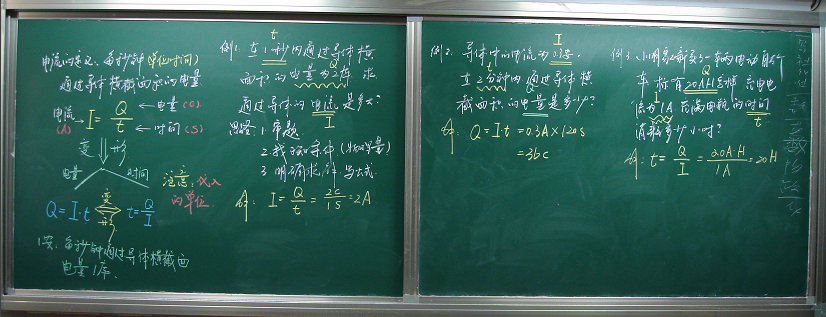 电流的定义:每秒钟(单位时间)
通过导体横截面积的电量
电流(A) → I = Q/t ← 电量(C)
← 时间(S)
变形
电量 时间
注意:代入
的单位.
Q=I·t 变形 t=Q/I
1安:每秒钟通过导体横截面
电量1库.
例1. 在1秒内通过导体横 t
面积的电量为2库, 求 Q
通过导体的电流是多大? I
思路: 1. 审题
2. 找已知条件(物理量)
3. 明确求解、写公式.
解: I = Q/t = 2C/1S = 2A
例2. 导体中的电流为0.3安, I
在2分钟内通过导体横
截面积的电量是多少? Q
解: Q=I·t=0.3A×120s
=36C
例3. 小明家新买了一车的电动自行
车 标有20AH 充电电 Q
流为1A 充满电瓶的时间 I t
需多少小时?
解: t = Q/I = 20A·H/1A = 20H